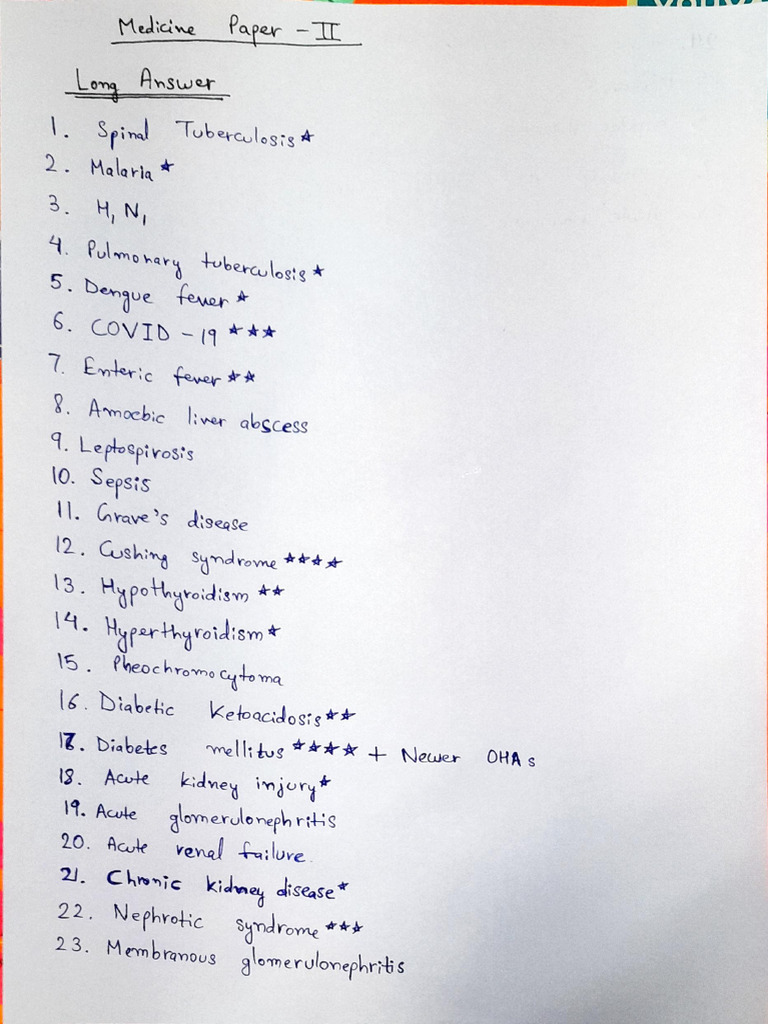 Medicine Paper - II
Long Answer
1. Spinal Tuberculosis ★
2. Malaria ★
3. H₁ N₁
4. Pulmonary tuberculosis ★
5. Dengue fever ★
6. COVID - 19 ★★★
7. Enteric fever ★★
8. Amoebic liver abscess
9. Leptospirosis
10. Sepsis
11. Grave's disease
12. Cushing syndrome ★★★★
13. Hypothyroidism ★★
14. Hyperthyroidism ★
15. Pheochromocytoma
16. Diabetic Ketoacidosis ★★
17. Diabetes mellitus ★★★★ + Newer OHAs
18. Acute kidney injury ★
19. Acute glomerulonephritis
20. Acute renal failure.
21. Chronic kidney disease ★
22. Nephrotic syndrome ★★★
23. Membranous glomerulonephritis